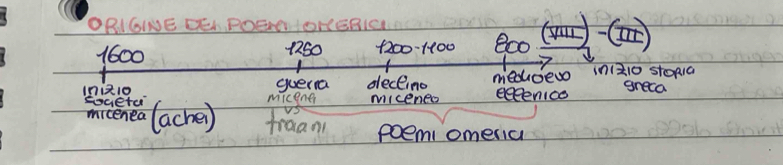 ORIGINE DEI POEMI OMERICI
1600 1250 1200-1100 800 (VIII) - (III)
inizio società micenea (achei)
guerra micenei vs troiani
declino miceneo
medioevo ellenico
inizio storia greca
poemi omerici